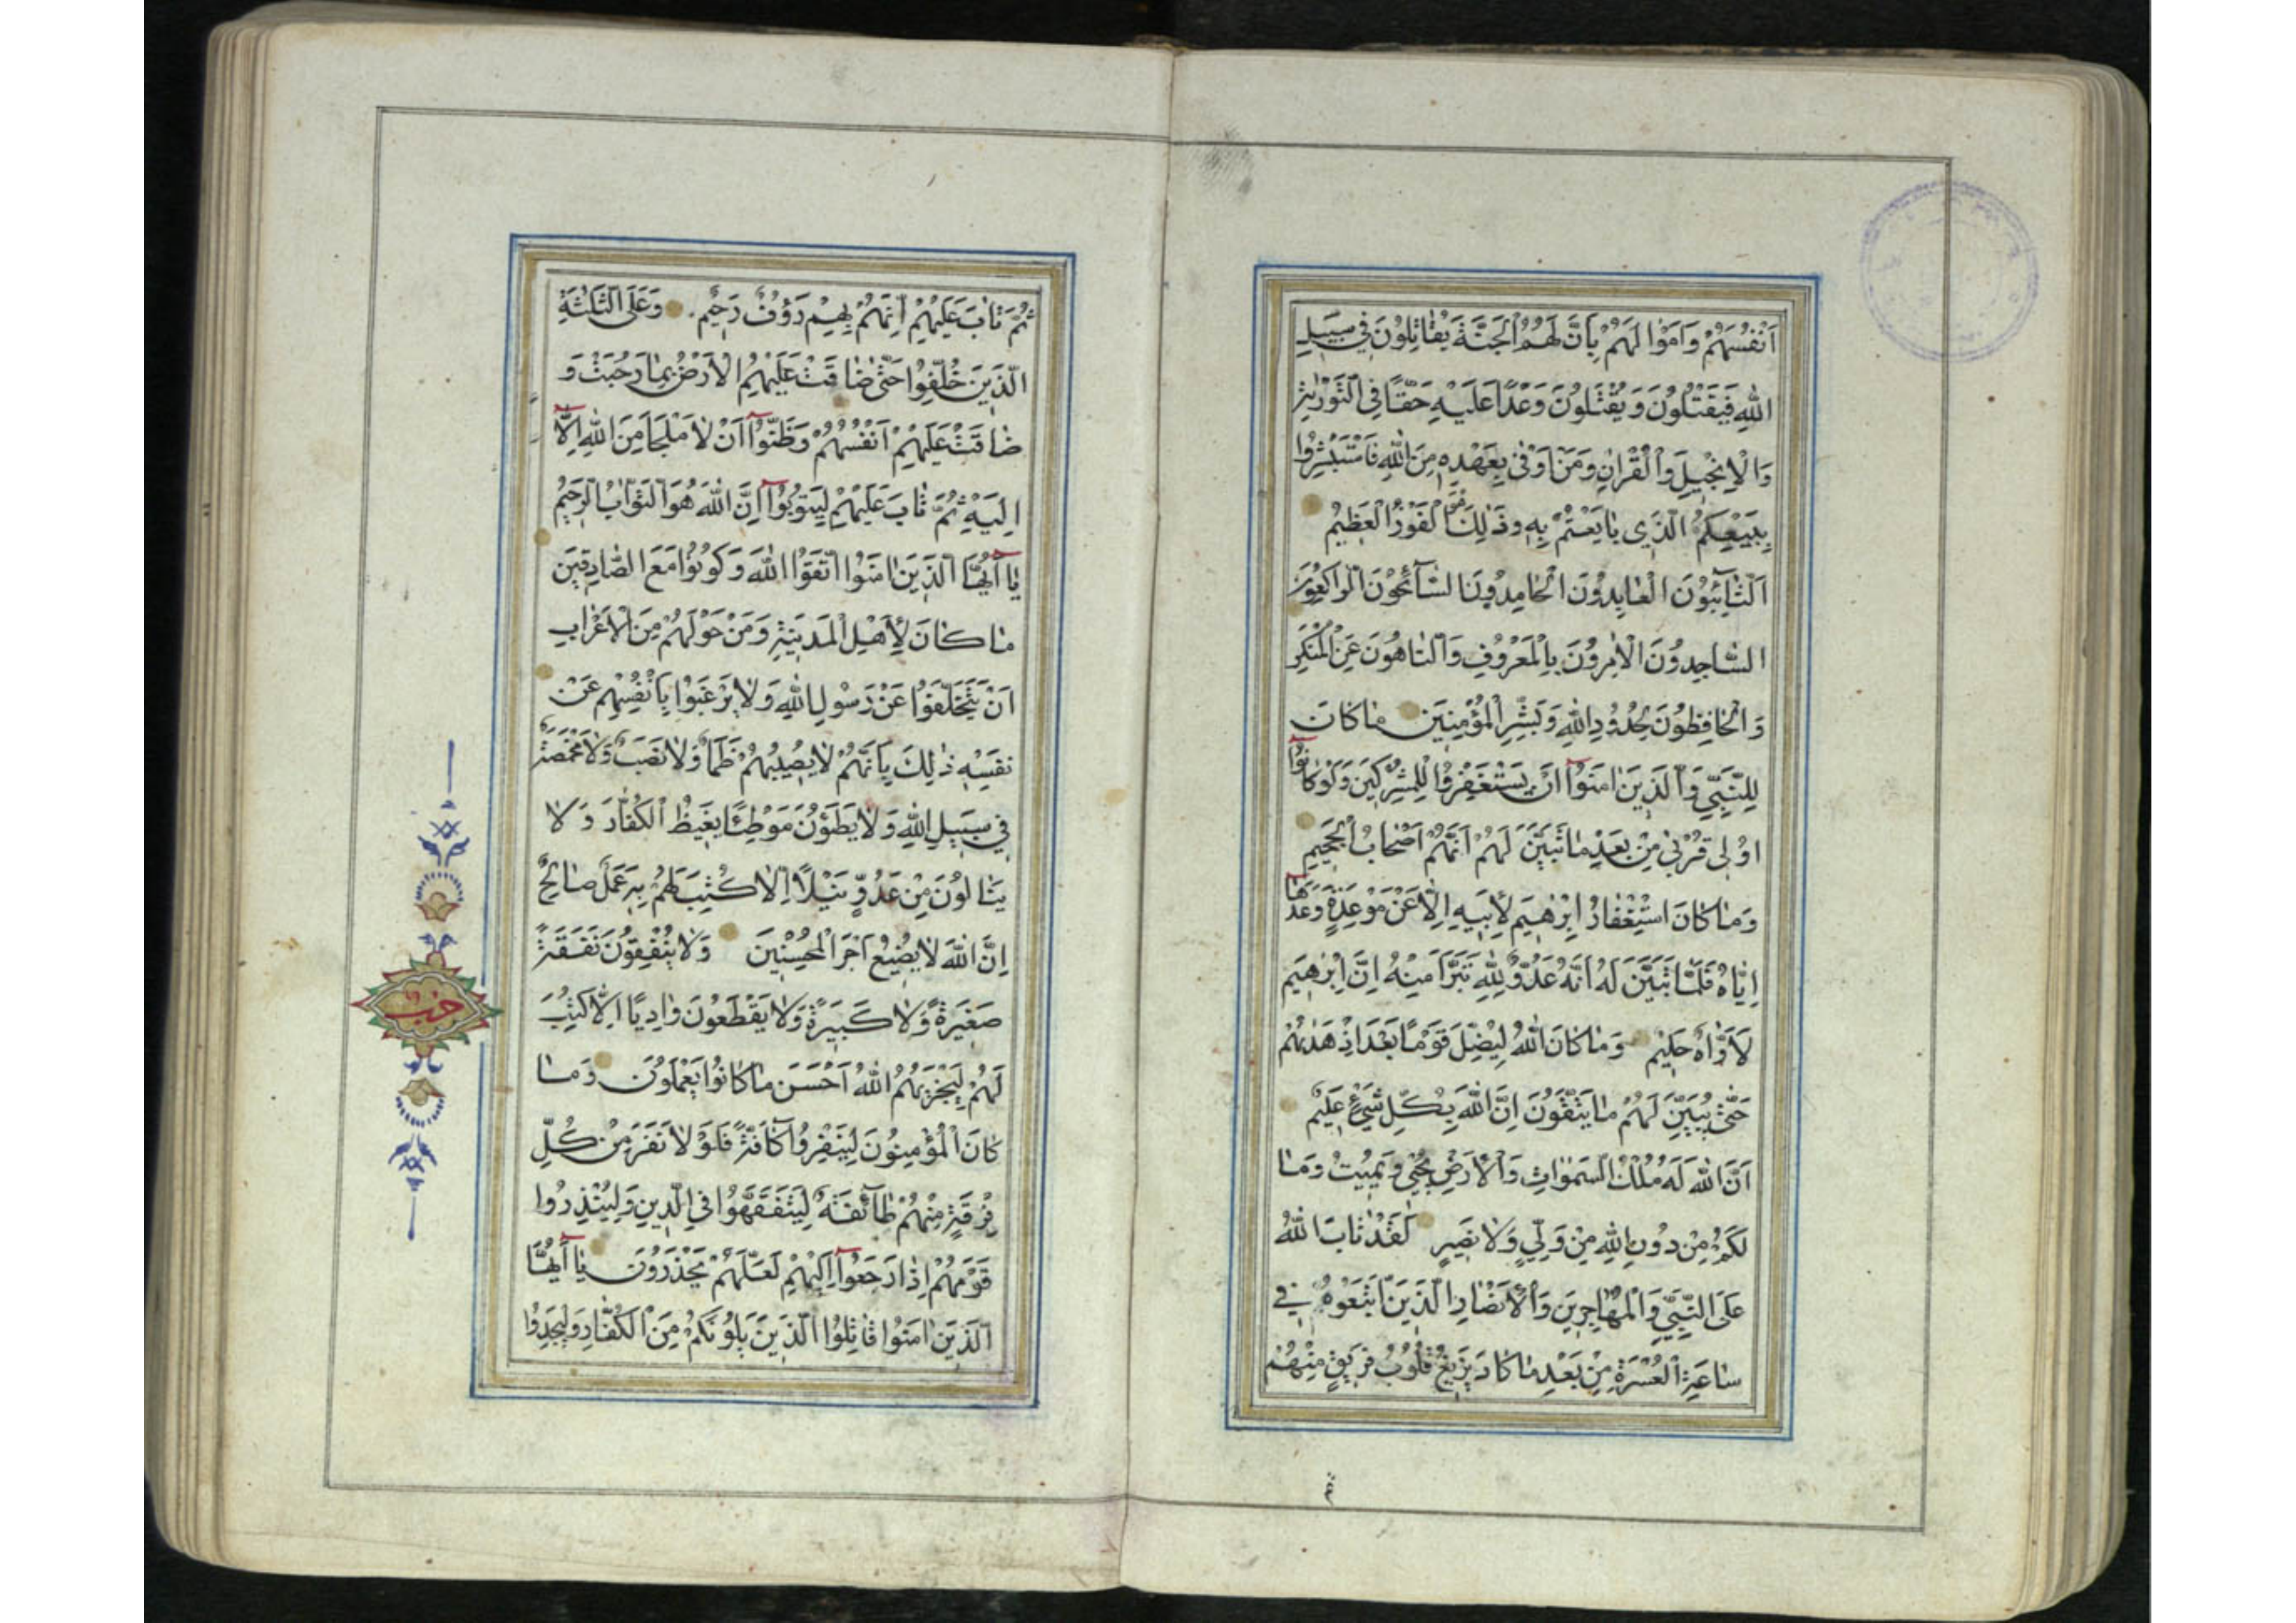 اَنْفُسَهُمْ وَاَمْوٰالَهُمْ بِاَنَّ لَهُمُ الْجَنَّةَ يُقٰاتِلُونَ فِي سَبِيلِ
اللّٰهِ فَيَقْتُلُونَ وَيُقْتَلُونَ وَعْدًا عَلَيْهِ حَقًّا فِي التَّوْرٰيةِ
وَالْاِنْجِيلِ وَالْقُرْاٰنِ وَمَنْ اَوْفٰى بِعَهْدِهِ مِنَ اللّٰهِ فَاسْتَبْشِرُوا
بِبَيْعِكُمُ الَّذِى بٰايَعْتُمْ بِهِ وَذٰلِكَ هُوَ الْفَوْزُ الْعَظِيمُ
اَلتّٰآئِبُونَ الْعٰابِدُونَ الْحٰامِدُونَ السّٰآئِحُونَ الرّٰاكِعُونَ
السّٰاجِدُونَ الْاٰمِرُونَ بِالْمَعْرُوفِ وَالنّٰاهُونَ عَنِ الْمُنْكَرِ
وَالْحٰافِظُونَ لِحُدُودِ اللّٰهِ وَبَشِّرِ الْمُؤْمِنِينَ مٰا كٰانَ
لِلنَّبِيِّ وَالَّذِينَ اٰمَنُوٓا اَنْ يَسْتَغْفِرُوا لِلْمُشْرِكِينَ وَلَوْ كٰانُوٓا
اُولِى قُرْبٰى مِنْ بَعْدِ مٰا تَبَيَّنَ لَهُمْ اَنَّهُمْ اَصْحٰابُ الْجَحِيمِ
وَمٰا كٰانَ اسْتِغْفٰارُ اِبْرٰهِيمَ لِاَبِيهِ اِلّٰا عَنْ مَوْعِدَةٍ وَعَدَهٰٓا
اِيّٰاهُ فَلَمّٰا تَبَيَّنَ لَهُ اَنَّهُ عَدُوٌّ لِلّٰهِ تَبَرَّاَ مِنْهُ اِنَّ اِبْرٰهِيمَ
لَاَوّٰاهٌ حَلِيمٌ وَمٰا كٰانَ اللّٰهُ لِيُضِلَّ قَوْمًا بَعْدَ اِذْ هَدٰيهُمْ
حَتّٰى يُبَيِّنَ لَهُمْ مٰا يَتَّقُونَ اِنَّ اللّٰهَ بِكُلِّ شَيْءٍ عَلِيمٌ
اَنَّ اللّٰهَ لَهُ مُلْكُ السَّمٰوٰاتِ وَالْاَرْضِ يُحْيِي وَيُمِيتُ وَمٰا
لَكُمْ مِنْ دُونِ اللّٰهِ مِنْ وَلِيٍّ وَلٰا نَصِيرٍ لَقَدْ تٰابَ اللّٰهُ
عَلَى النَّبِيِّ وَالْمُهٰاجِرِينَ وَالْاَنْصٰارِ الَّذِينَ اتَّبَعُوهُ فِي
سٰاعَةِ الْعُسْرَةِ مِنْ بَعْدِ مٰا كٰادَ يَزِيغُ قُلُوبُ فَرِيقٍ مِنْهُمْ
ثُمَّ
ثُمَّ تٰابَ عَلَيْهِمْ اِنَّهُمْ بِهِمْ رَؤُفٌ رَحِيمٌ وَعَلَى الثَّلٰثَةِ
الَّذِينَ خُلِّفُوا حَتّٰى ضٰاقَتْ عَلَيْهِمُ الْاَرْضُ بِمٰا رَحُبَتْ وَ
ضٰاقَتْ عَلَيْهِمْ اَنْفُسُهُمْ وَظَنُّوٓا اَنْ لٰا مَلْجَاَ مِنَ اللّٰهِ اِلّٰٓا
اِلَيْهِ ثُمَّ تٰابَ عَلَيْهِمْ لِيَتُوبُوٓا اِنَّ اللّٰهَ هُوَ التَّوّٰابُ الرَّحِيمُ
يٰٓا اَيُّهَا الَّذِينَ اٰمَنُوا اتَّقُوا اللّٰهَ وَكُونُوا مَعَ الصّٰادِقِينَ
مٰا كٰانَ لِاَهْلِ الْمَدِينَةِ وَمَنْ حَوْلَهُمْ مِنَ الْاَعْرٰابِ
اَنْ يَتَخَلَّفُوا عَنْ رَسُولِ اللّٰهِ وَلٰا يَرْغَبُوا بِاَنْفُسِهِمْ عَنْ
نَفْسِهِ ذٰلِكَ بِاَنَّهُمْ لٰا يُصِيبُهُمْ ظَمَاٌ وَلٰا نَصَبٌ وَلٰا مَخْمَصَةٌ
فِي سَبِيلِ اللّٰهِ وَلٰا يَطَؤُنَ مَوْطِئًا يَغِيظُ الْكُفّٰارَ وَلٰا
يَنٰالُونَ مِنْ عَدُوٍّ نَيْلًا اِلّٰا كُتِبَ لَهُمْ بِهِ عَمَلٌ صٰالِحٌ
اِنَّ اللّٰهَ لٰا يُضِيعُ اَجْرَ الْمُحْسِنِينَ وَلٰا يُنْفِقُونَ نَفَقَةً
صَغِيرَةً وَلٰا كَبِيرَةً وَلٰا يَقْطَعُونَ وٰادِيًا اِلّٰا كُتِبَ
لَهُمْ لِيَجْزِيَهُمُ اللّٰهُ اَحْسَنَ مٰا كٰانُوا يَعْمَلُونَ وَمٰا
كٰانَ الْمُؤْمِنُونَ لِيَنْفِرُوا كٰآفَّةً فَلَوْلٰا نَفَرَ مِنْ كُلِّ
فِرْقَةٍ مِنْهُمْ طٰآئِفَةٌ لِيَتَفَقَّهُوا فِي الدِّينِ وَلِيُنْذِرُوا
قَوْمَهُمْ اِذٰا رَجَعُوٓا اِلَيْهِمْ لَعَلَّهُمْ يَحْذَرُونَ يٰٓا اَيُّهَا
الَّذِينَ اٰمَنُوا قٰاتِلُوا الَّذِينَ يَلُونَكُمْ مِنَ الْكُفّٰارِ وَلْيَجِدُوا
حزب